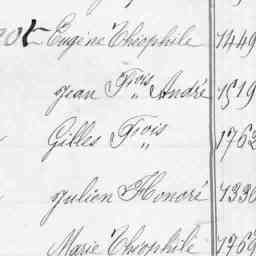 Eugène Théophile 1449
Jean Frois André 1519
Gilles Frois 1762
Julien Honoré 1330
Marie Théophile 1769